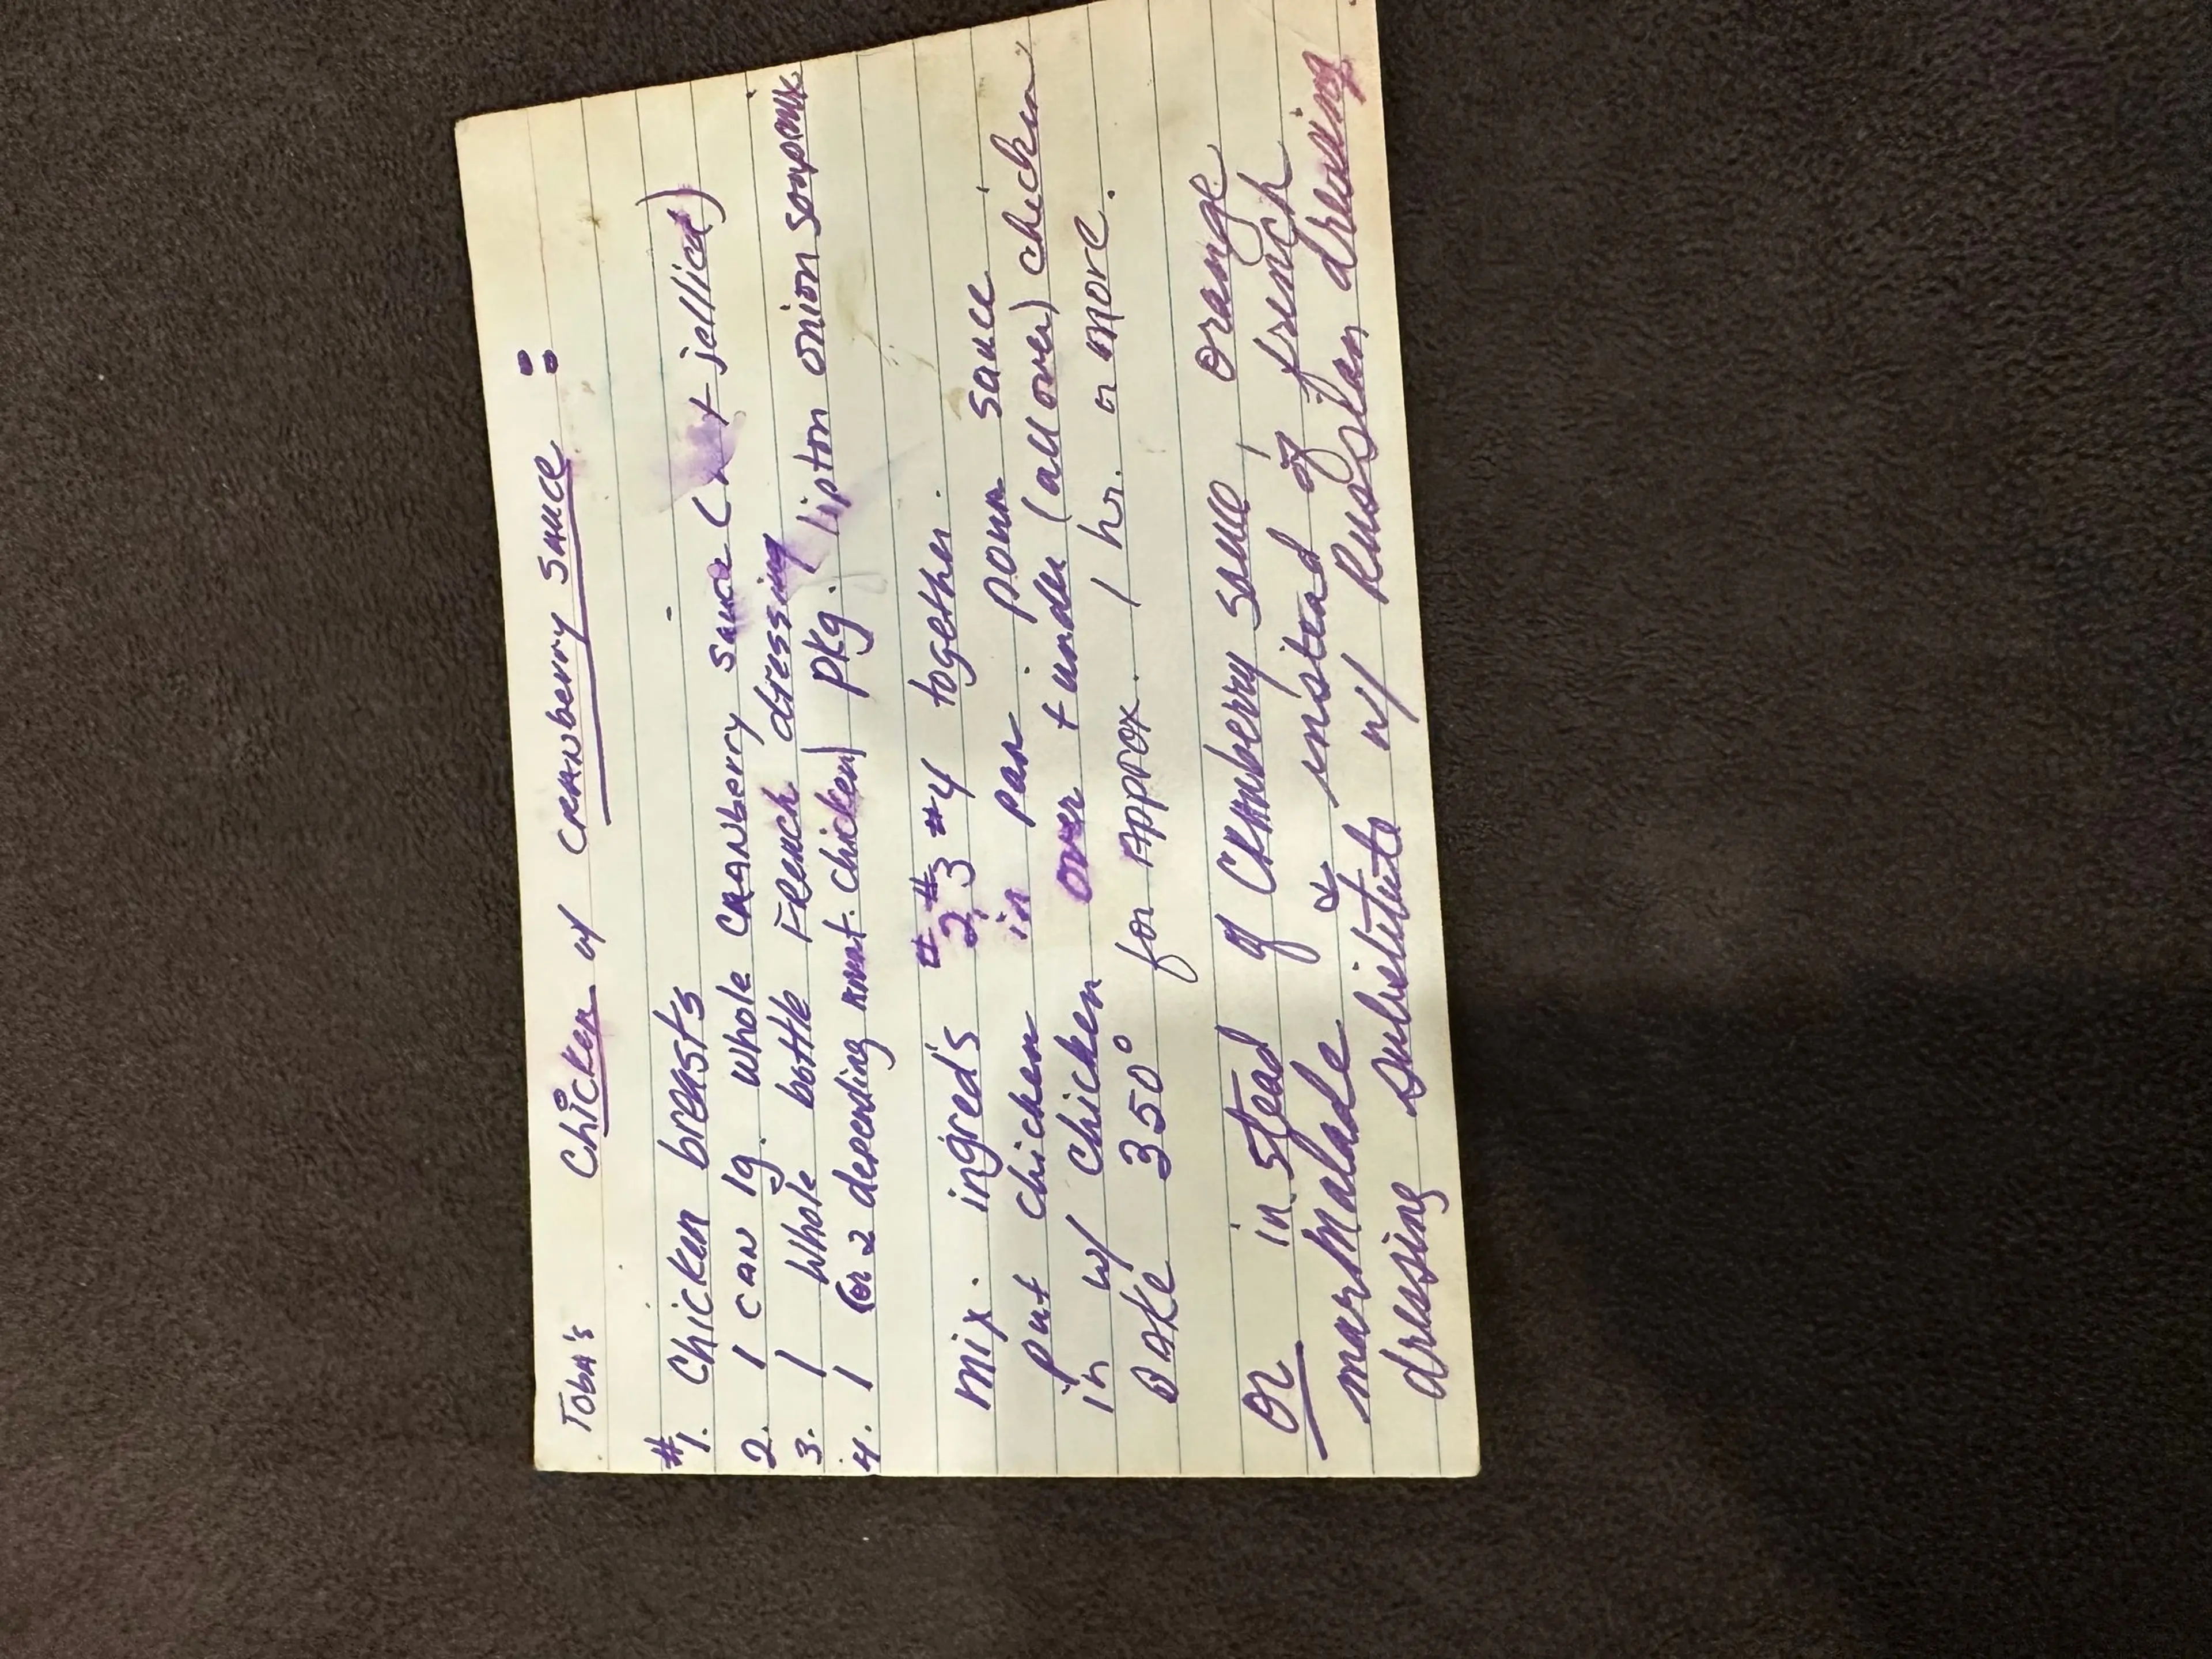 Toba's Chicken w/ CRANberry SAUCE :
#1. Chicken breasts
2. 1 can lg. whole CRANberry sauce ( jellied)
3. 1 whole bottle French dressing
4. 1 (or 2 depending amt. chicken) pkg. lipton onion soup mix
mix. ingred's #2, #3 #4 together.
put chicken in pan pour sauce
in w/ chicken over + under (all over) chicken
BAKE 350° for Approx. 1 hr. or more.
or in stead of CRANberry sauce, orange
marmalade & instead of french
dressing substitute w/ Russian dressing